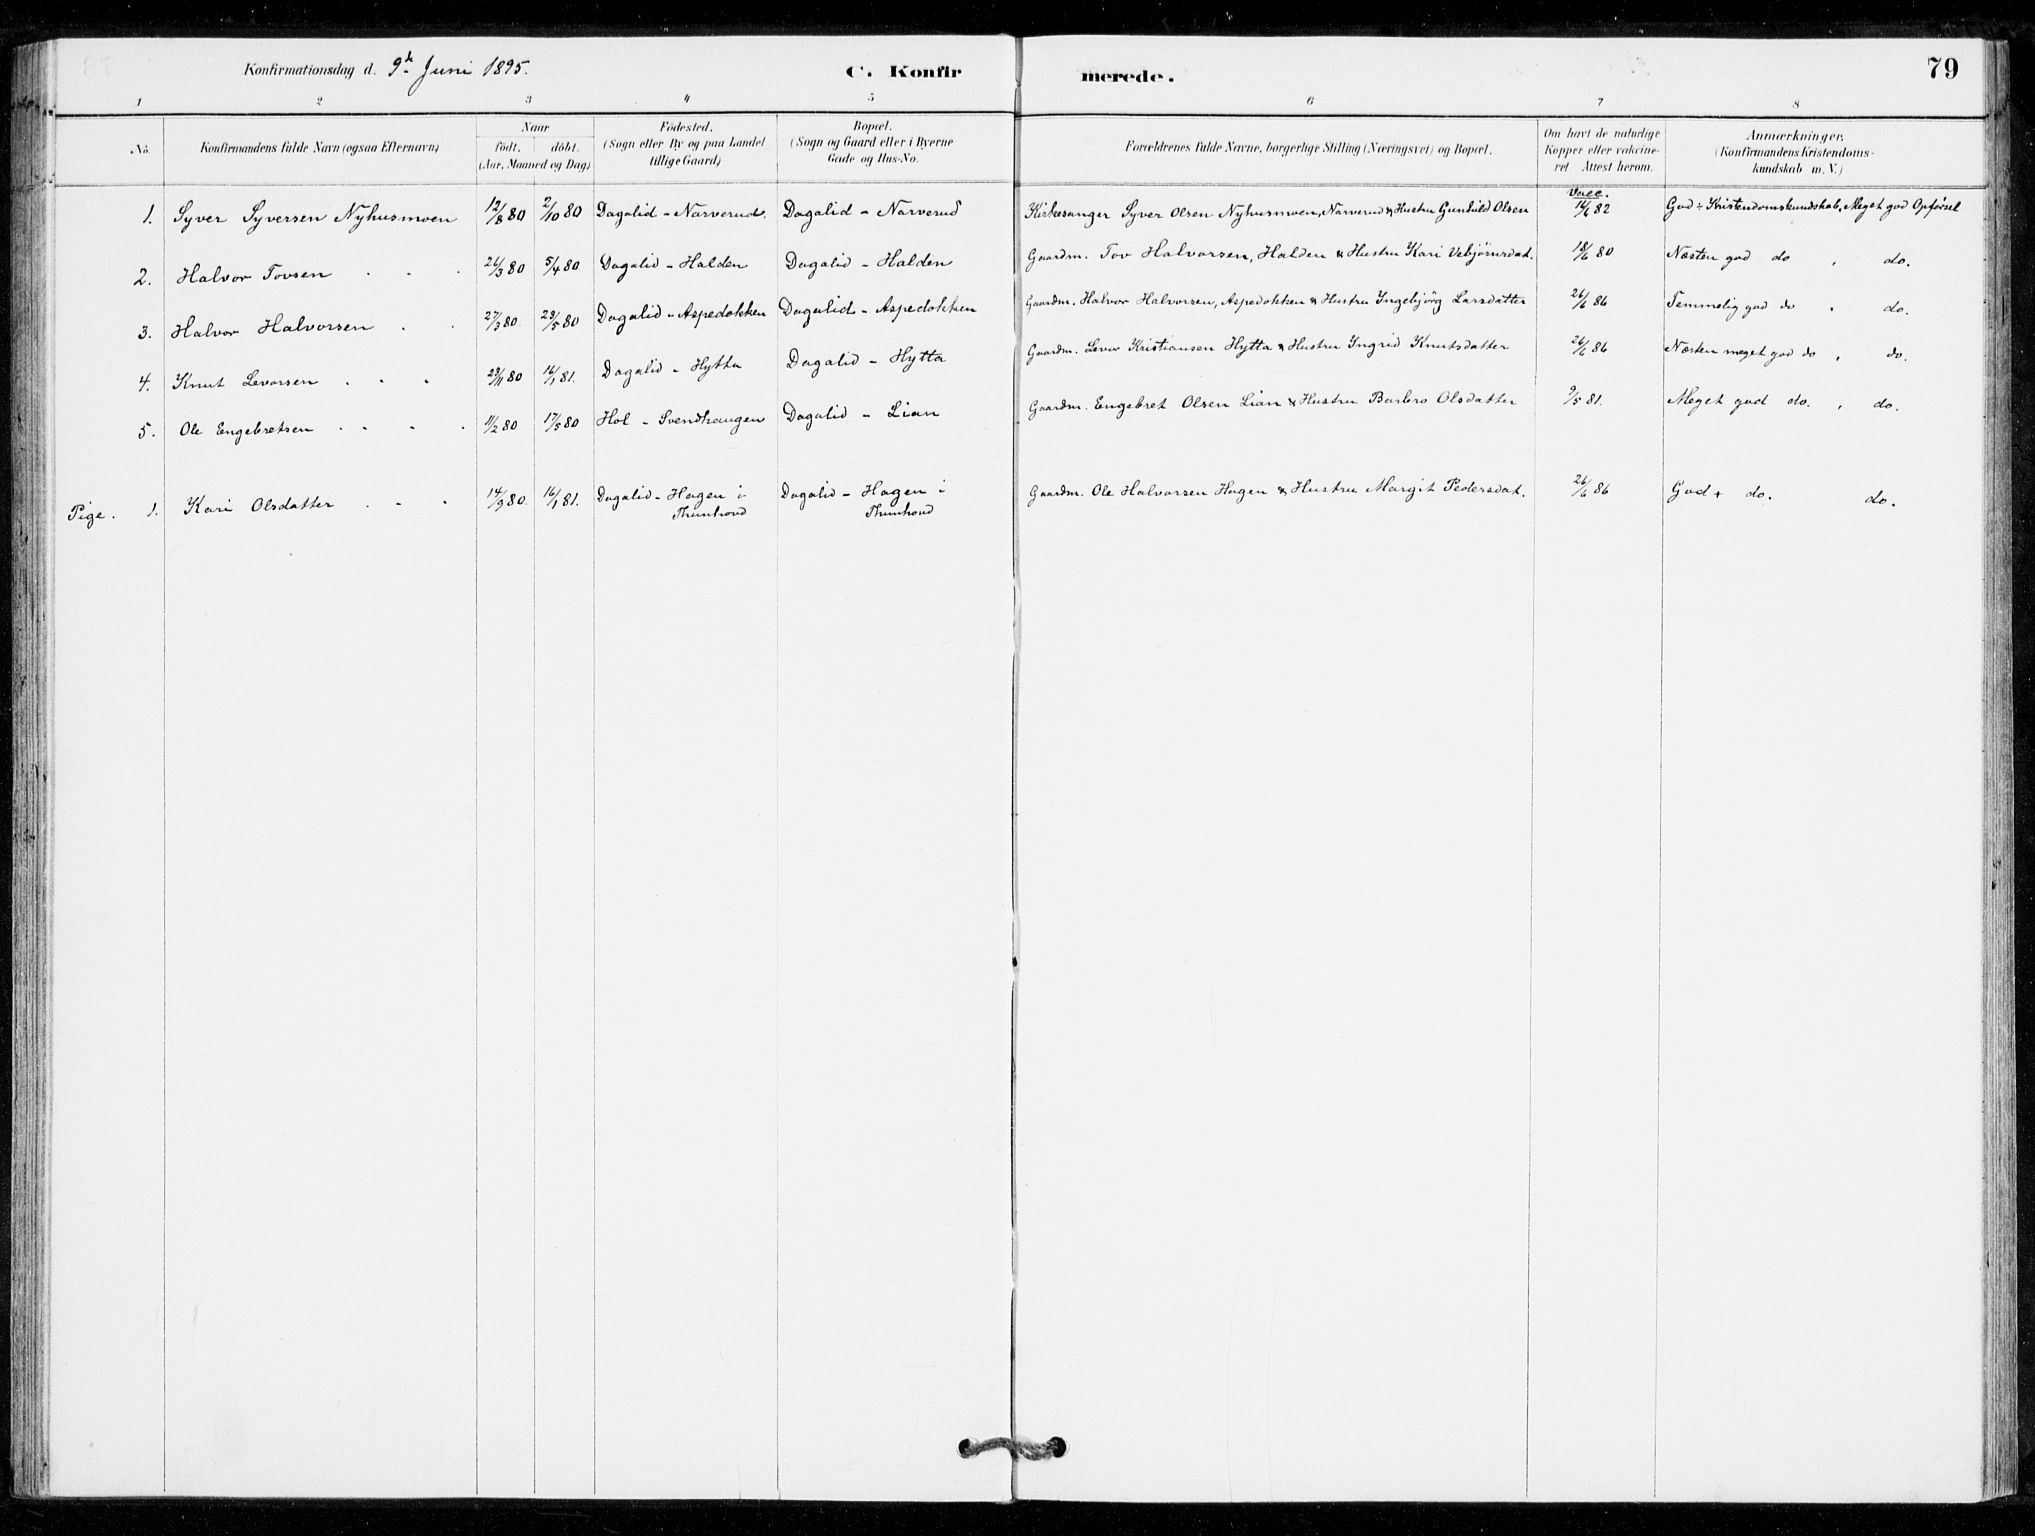 Konfirmationsdag d. 9de Juni 1895. C. Konfir merede. 79
1 2 3 4 5 6 7 8
No. Konfirmandens fulde Navn (ogsaa Efternavn) Naar födt. döbt. (Aar, Maaned og Dag) Födested. (Sogn eller By og paa Landet tillige Gaard) Bopæl. (Sogn og Gaard eller i Byerne Gade og Hus-No. Forældrenes fulde Navne, borgerlige Stilling (Næringsvei) og Bopæl. Om havt de naturlige Kopper eller vakcineret. Attest herom. Anmærkninger. (Konfirmandens Kristendomskundskab m. V.)
1. Syver Syversen Nyhusmoen 12/8 80 2/10 80 Dagalid - Narverud. Dagalid - Narverud Kirkesanger Syver Olsen Nyhusmoen, Narverud & Hustru Gunhild Olsen Vacc. 16/6 82 God ÷ Kristendomskundskab, Meget god Opførsel
2. Halvor Tovsen 26/3 80 5/4 80 Dagalid - Halden Dagalid - Halden Gaardm. Tov Halvorsen, Halden & Hustru Kari Vebjörnsdat. 18/6 80 Næsten god do , do.
3. Halvor Halvorsen 27/3 80. 23/5 80 Dagalid - Aspedokken Dagalid - Aspedokken Gaardm. Halvor Halvorsen, Aspedokken & Hustru Ingebjörg Larsdatter 26/6 86 Temmelig god do , do.
4. Knut Levorsen 23/11 80 16/1 81. Dagalid - Hytta Dagalid - Hytta Gaardm. Levor Kristiansen Hytta & Hustru Ingrid Knutsdatter 26/6 86 Næsten meget god do , do.
5. Ole Engebretsen 11/2 80 17/5 80 Hol - Svendhaugen Dagalid - Lian Gaardm. Engebret Olsen Lian & Hustru Barbro Olsdatter 9/5 81. Meget god do. , do.
Pige. 1. Kari Olsdatter 14/9 80. 16/1 81. Dagalid - Hagen i Thunhovd Dagalid - Hagen i Thunhovd Gaardm. Ole Halvorsen Hagen & Hustru Margit Pedersdat. 26/6 86 God + do. do.